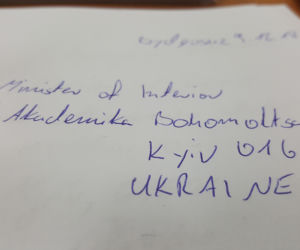 Minister of Interior
Akademika Bohomoltsa
Kyiv 016
UKRAINE